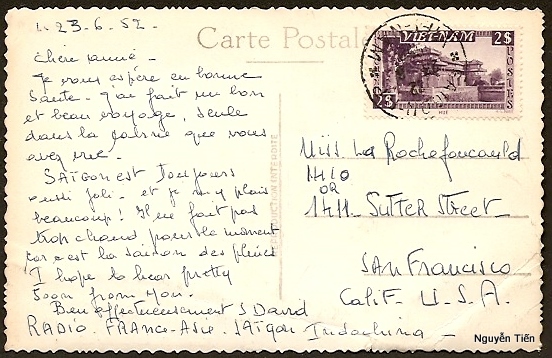 23.6.52_
Carte Postale
VIÊT-NAM
2$
2$
POSTES
Chère amie_
Je vous espère en bonne
santé_ J'ai fait un bon
et beau voyage, seule
dans la que vous
avez vue_
SAÏGON est Toujours
aussi joli_ et je m'y plais
beaucoup! Il ne fait pas
trop chaud pour le moment
car c'est la saison des pluies
I hope to hear pretty
soon from you_
Bien affectueusement S David
RADIO. FRANCE-ASIE. SAÏGON Indochina_
REPRODUCTION INTERDITE
Miss La Rochefoucauld
1410
OR
1411_ SUTTER STREET_
SAN FRANCISCO
CALIF_ U.S.A.
Nguyễn Tiến